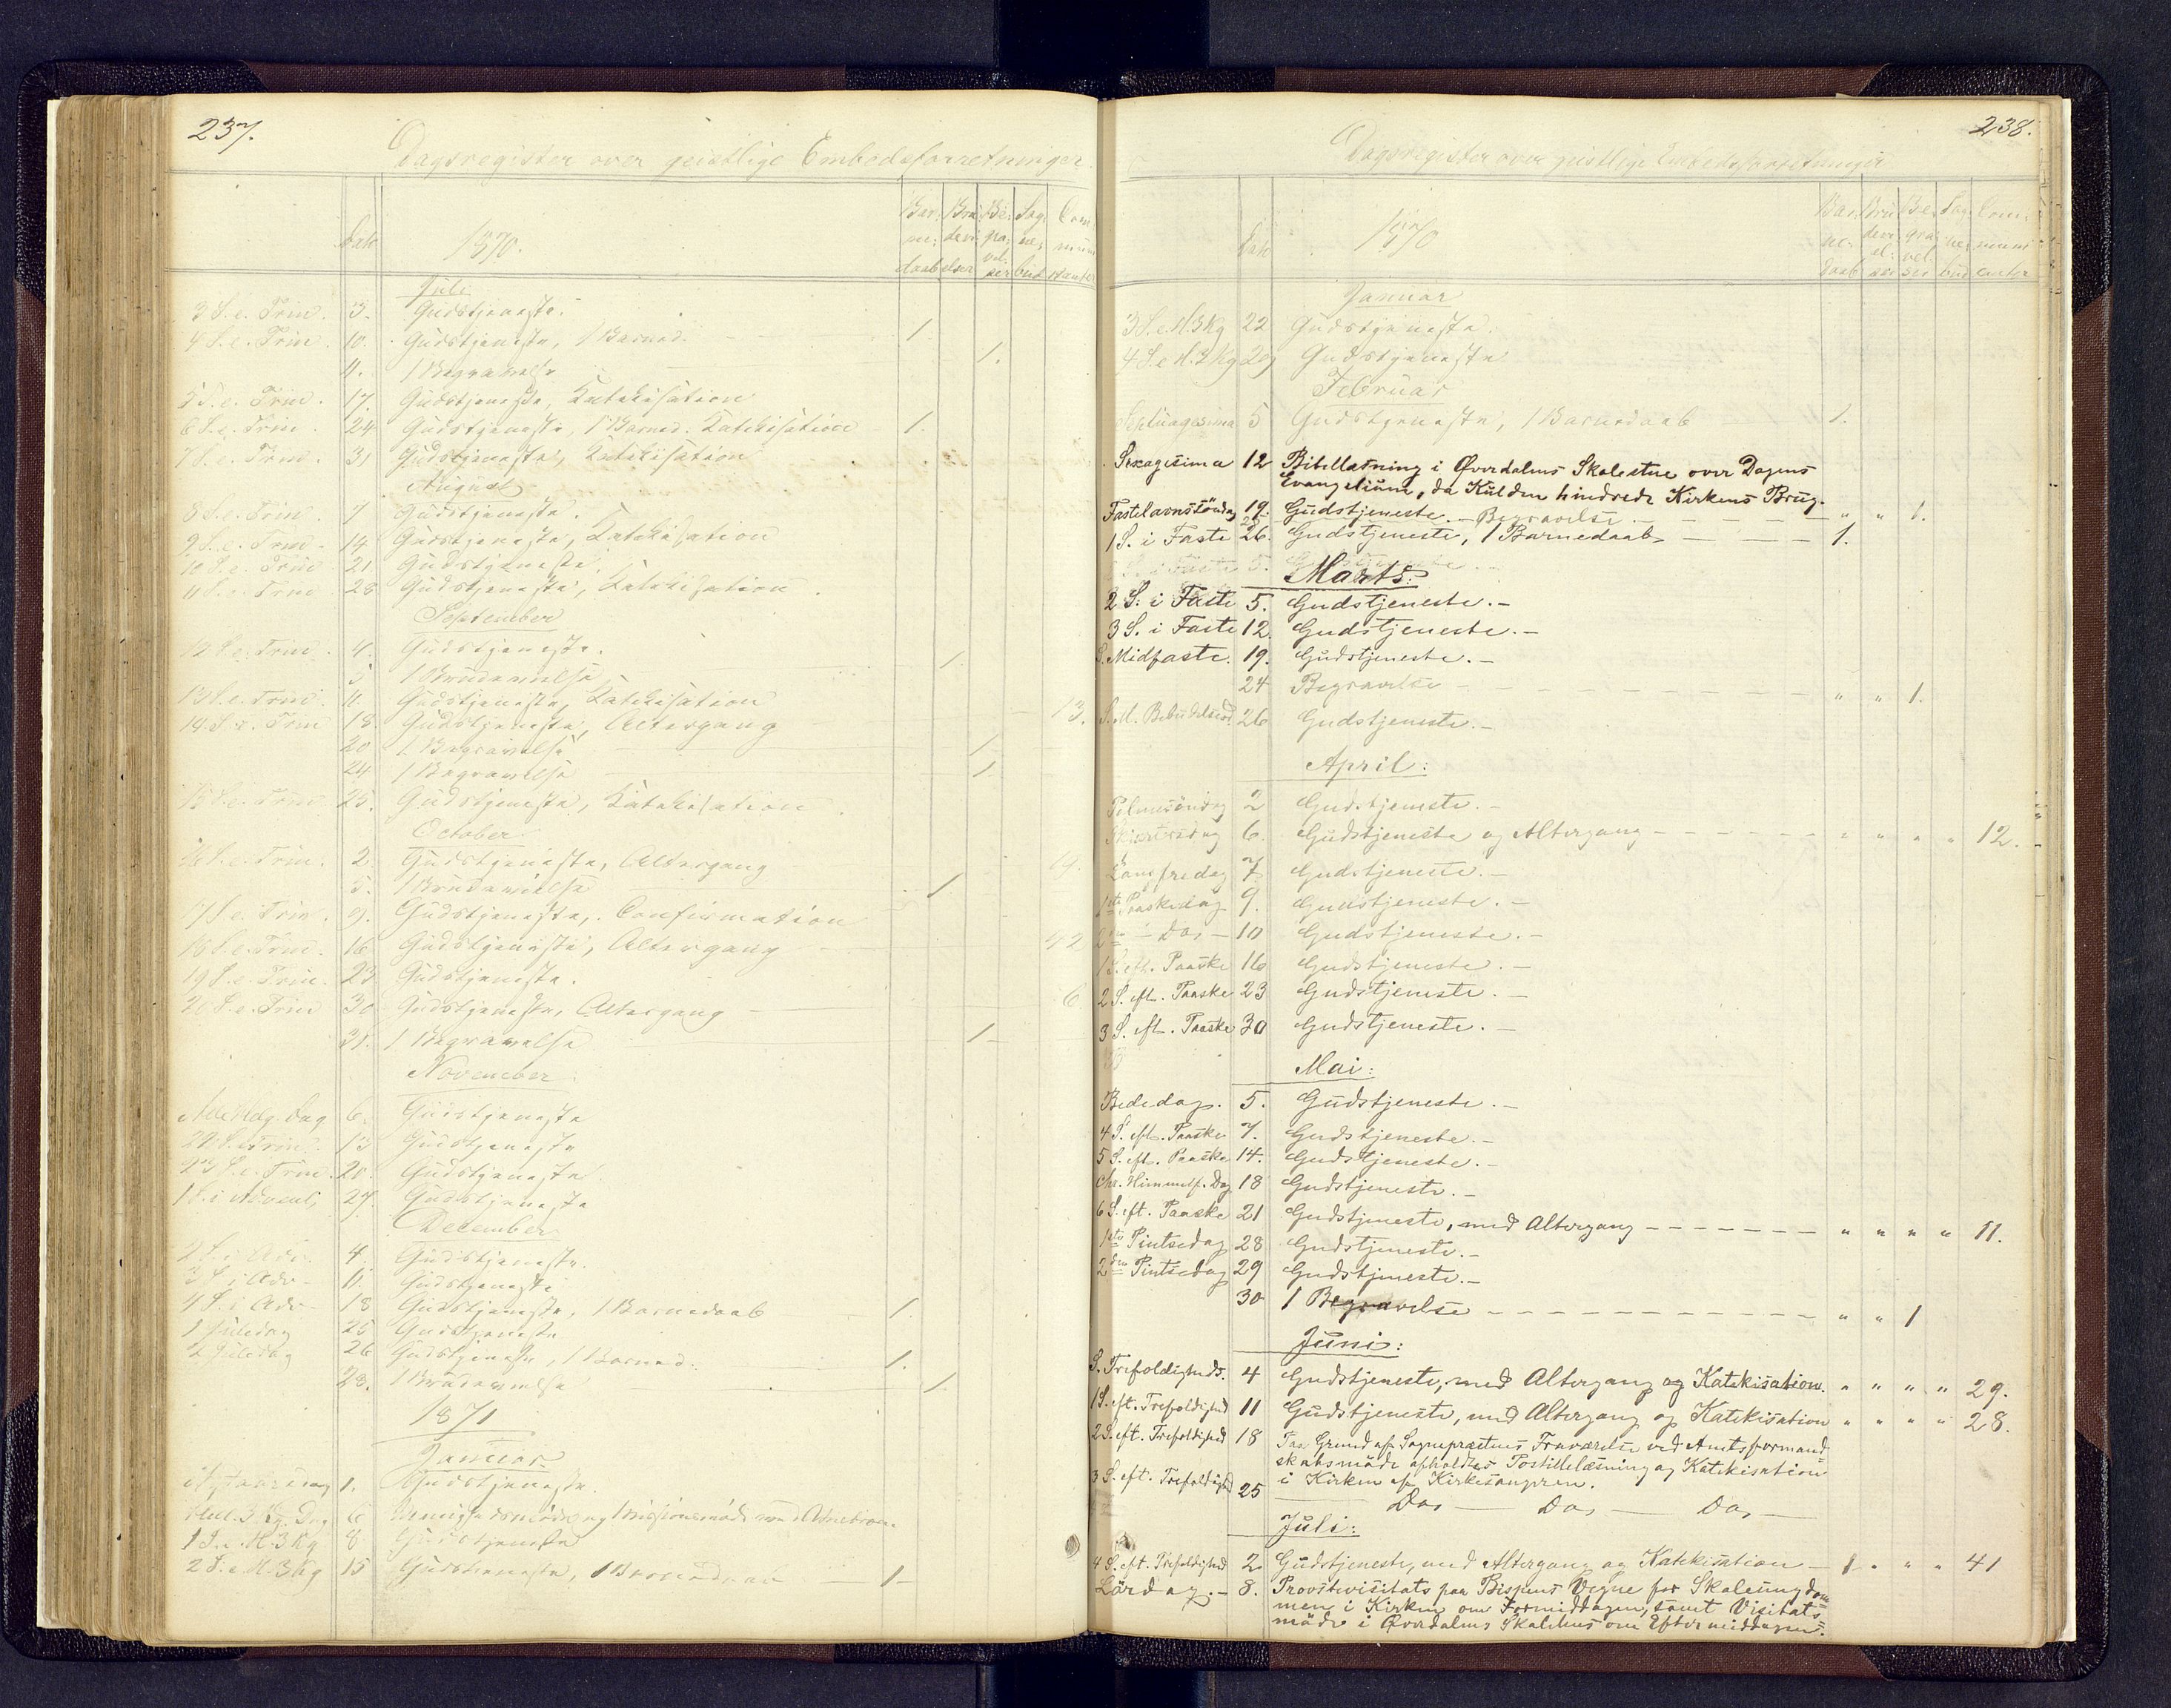 237.
Dagsregister over geistlige Embedsforretninger.
Dato 1870. Barnedaab Brudevielser Begravelser Sognebud Communicanter
Juli
3 S. e. Trin. 3. Gudstjeneste.
4 S. e. Trin. 10. Gudstjeneste, 1 Barned. 1.
11. 1 Begravelse 1.
5 S. e. Trin. 17. Gudstjeneste, Katekisation
6 S. e. Trin. 24 Gudstjeneste, 1 Barned. Katekisation 1.
7 S. e. Trin. 31 Gudstjeneste, Katekisation
August
8 S. e. Trin. 7 Gudstjeneste.
9 S. e. Trin. 14 Gudstjeneste, Katekisation
10 S. e. Trin 21 Gudstjeneste.
11 S. e. Trin 28 Gudstjeneste, Katekisation
September
12 S. e. Trin. 4. Gudstjeneste.
5 1 Brudevielse 1.
13 S. e. Trin. 11 Gudstjeneste, Katekisation
14 S. e. Trin 18 Gudstjeneste, Altergang 13.
20 1 Begravelse 1
24 1 Begravelse 1
15 S. e. Trin 25. Gudstjeneste, Katekisation
October
16 S. e. Trin. 2. Gudstjeneste, Altergang 19.
5. 1 Brudevielse 1
17 S. e. Trin. 9. Gudstjeneste, Confirmation
18 S. e. Trin. 16 Gudstjeneste, Altergang 42
19 S. e. Trin. 23 Gudstjeneste.
20 S. e. Trin 30 Gudstjeneste, Altergang 6
31. 1 Begravelse 1
November
Alle Helg. Dag 6. Gudstjeneste
22 S. e. Trin. 13 Gudstjeneste
23 S. e. Trin. 20. Gudstjeneste
1 S. i Advent, 27. Gudstjeneste
December
2 S. i Adv. 4. Gudstjeneste.
3 S. i Adv. 11. Gudstjeneste
4 S. i Adv. 18 Gudstjeneste, 1 Barnedaab 1.
1 Juledag 25 Gudstjeneste
2 Juledag 26 Gudstjeneste, 1 Barned. 1.
28. 1 Brudevielse 1
1871
Januar
Nytaarsdag 1. Gudstjeneste.
Hel. 3 Kg. Dag 6 og Missionsmøde
1 S. e. H. 3 Kg 8 Gudstjeneste
2 S. e. H. 3 Kg 15 Gudstjeneste, 1 Barnedaab 1
238.
Dagsregister over geistlige Embedsforretninger
Dato Barnedaab Brudevielser Begravelser Sognebud Communicanter
Januar
3 S. e. H. 3 Kg 22 Gudstjeneste.
4 S. e. H. 3 Kg 29 Gudstjeneste
Februar
Septuagesima 5 Gudstjeneste, 1 Barnedaab 1.
Sexagesima 12 Bibellæsning i Øverdalens Skolestue over Dagens
Evangelium, da Kulden hindrede Kirkens Brug.
Fastelavnssöndag 19. Gudstjeneste. – Begravelse – – – – – " " 1.
1 S. i Faste 26. Gudstjeneste, 1 Barnedaab – – – – 1.
Marts:
2 S. i Faste 5. Gudstjeneste. –
3 S. i Faste 12. Gudstjeneste. –
S. Midfaste. 19. Gudstjeneste. –
24 Begravelse – – – – – " " 1.
S. M. Bebudelsesd. 26 Gudstjeneste. –
April:
Palmesöndag 2 Gudstjeneste. –
Skjærtorsdag 6. Gudstjeneste og Altergang – – – – " " " " 12.
Langfredag 7. Gudstjeneste. –
1ste Paaskedag 9. Gudstjeneste. –
2den – Do, – 10 Gudstjeneste. –
1 S. eft. Paaske 16 Gudstjeneste. –
2 S. eft. Paaske 23 Gudstjeneste. –
3 S. eft. Paaske 30 Gudstjeneste. –
Mai:
Bededag. 5. Gudstjeneste. –
4 S. eft. Paaske 7. Gudstjeneste. –
5 S. eft. Paaske 14. Gudstjeneste. –
Chr. Himmelf. Dag 18 Gudstjeneste. –
6 S. eft. Paaske 21 Gudstjeneste, med Altergang – – – – " " " " 11.
1ste Pintsedag 28 Gudstjeneste. –
2den Pintsedag 29 Gudstjeneste. –
30 1 Begravelse – – – – – " " 1
Juni:
S. Trefoldigheds. 4 Gudstjeneste, med Altergang og Katekisation. " " " " 29.
1 S. eft. Trefoldighed 11 Gudstjeneste, med Altergang og Katekisation " " " " 28.
2 S. eft. Trefoldighed 18 Paa Grund af Sognepræstens Fraværelse ved Amtsformand-
skabsmöde afholdtes Postillelæsning og Katekisation
3 S. eft. Trefoldighed 25 i Kirken af Kirkesangeren.
Do, – Do, – Do, –
Juli:
4 S. eft. Trefoldighed 2 Gudstjeneste, med Altergang og Katekisation – 1 " " " 41
Lördag. – 8. Provstevisitats paa Bispens Vegne for Skoleungdom-
men i Kirken om Formiddagen, samt Visitats-
möde i Øverdalens Skolehus om Eftermiddagen.